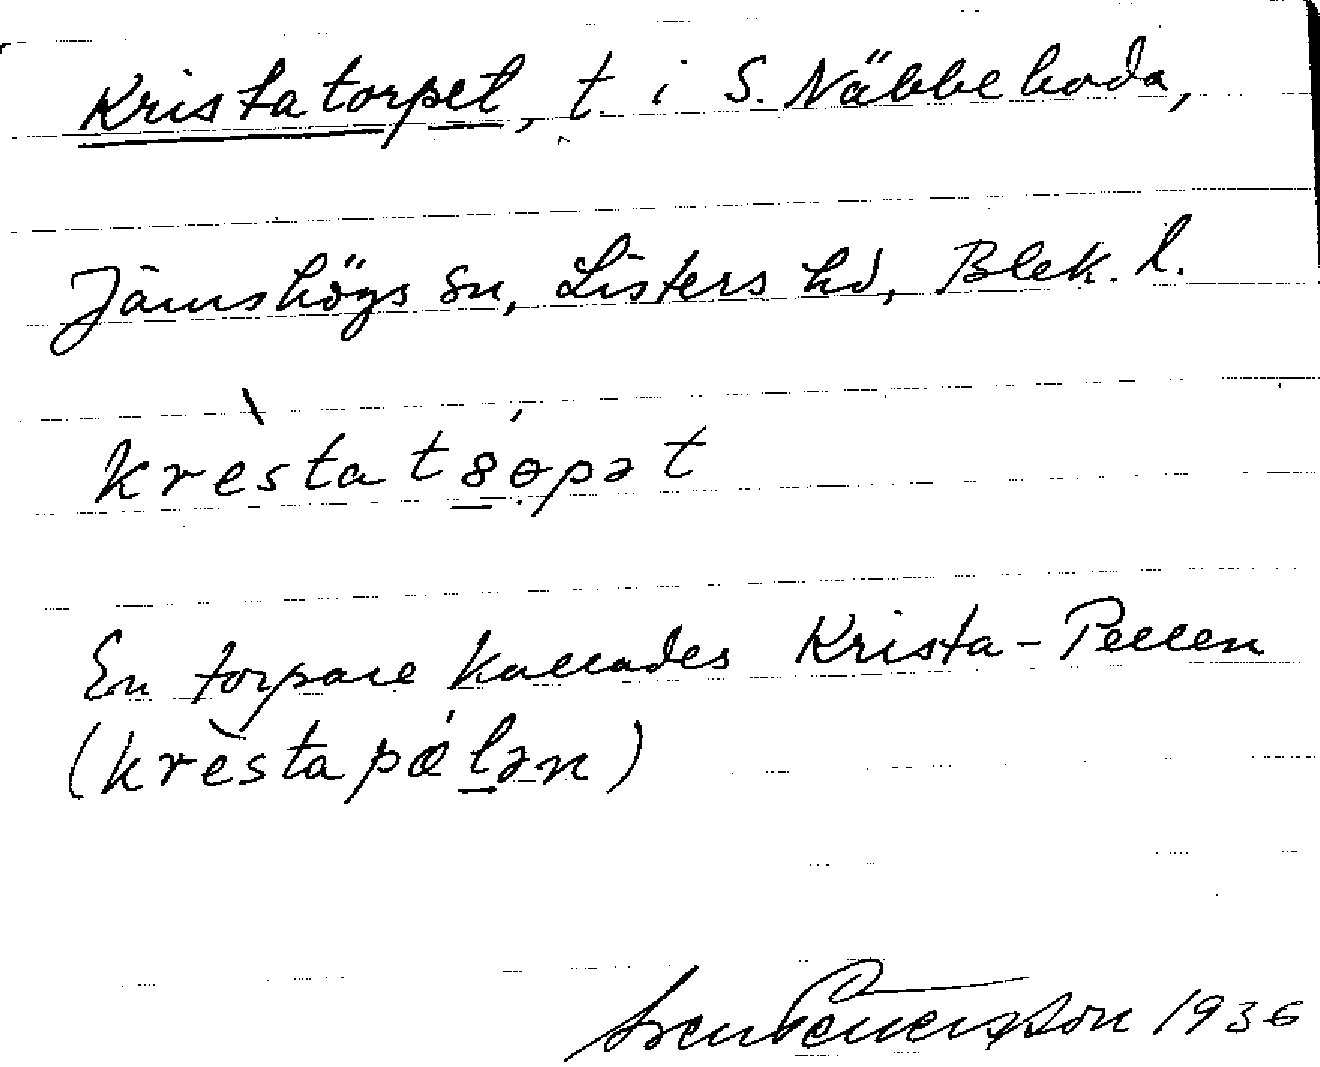 Kristatorpet, t. i S. Näbbeboda,
Jämshögs sn, Listers hd, Blek. l.
krèstatsǿpət
En torpare kallades Krista-Pellen
(krèstapǽlən)
1936